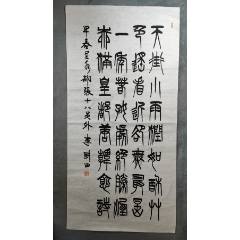 天街小雨潤如酥艸
色遙看近卻無最是
一年春好處絕勝煙
柳滿皇都書韓愈詩
早春呈水部張十八員外 李剛田